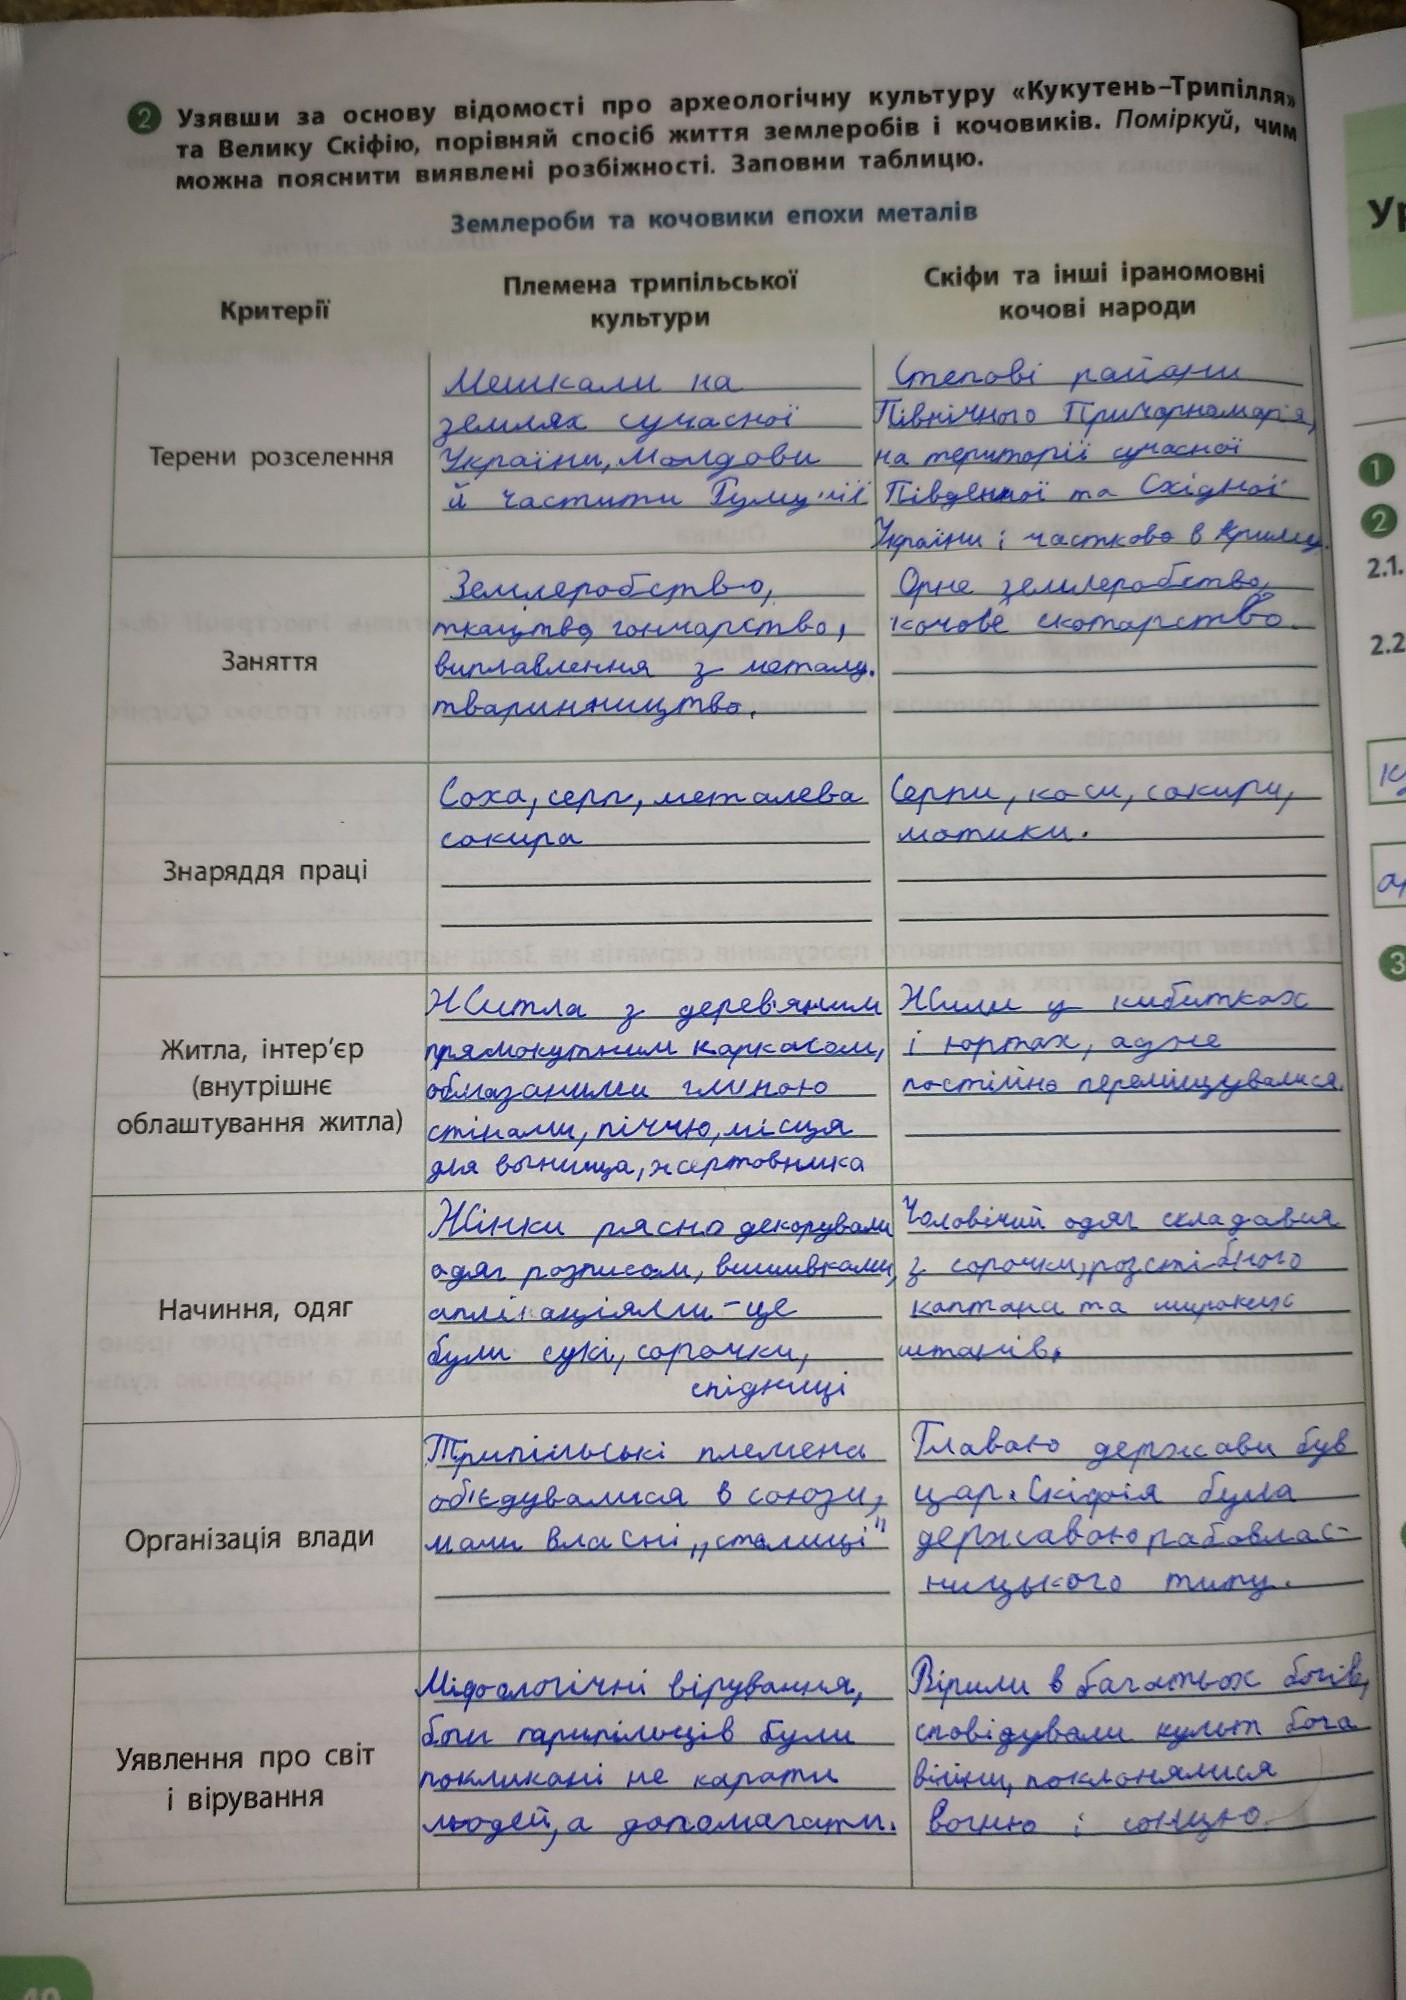 2 Узявши за основу відомості про археологічну культуру «Кукутень–Трипілля»
та Велику Скіфію, порівняй спосіб життя землеробів і кочовиків. Поміркуй, чим
можна пояснити виявлені розбіжності. Заповни таблицю.
Землероби та кочовики епохи металів
Критерії
Племена трипільської
культури
Скіфи та інші іраномовні
кочові народи
Терени розселення
Мешкали на
землях сучасної
України, Молдови
й частити Румунії
Степові райони
Північного Причорномор'я,
на території сучасної
Південної та Східної
України і частково в Криму.
Заняття
Землеробство,
ткацтво, гончарство,
виплавлення з металу.
тваринництво.
Орне землеробство,
кочове скотарство.
Знаряддя праці
Соха, серп, металева
сокира
Серпи, коси, сокири,
мотики.
Житла, інтер’єр
(внутрішнє
облаштування житла)
Житла з дерев'яним
прямокутним каркасом,
обмазаними глиною
стінами, піччю, місця
для вогнища, жертовника
Жили у кибитках
і юртах, адже
постійно переміщувалися.
Начиння, одяг
Жінки рясно декорували
одяг розписом, вишивками,
аплікаціями - це
були сукі, сорочки,
спідниці
Чоловічий одяг складався
з сорочки, розстібного
каптана та широких
штанів.
Організація влади
Трипільські племена
об'єдувалися в союзи,
мали власні „столиці"
Главаю держави був
цар. Скіфія була
державаю рабовлас-
ницького типу.
Уявлення про світ
і вірування
Міфологічні вірування,
боги трипільців були
покликані не карати
людей, а допомагати.
Вірили в багатьох богів,
сповідували культ бога
війни, поклонялися
вогню і сонцю.
Ур
1
2
2.1.
2.2
3